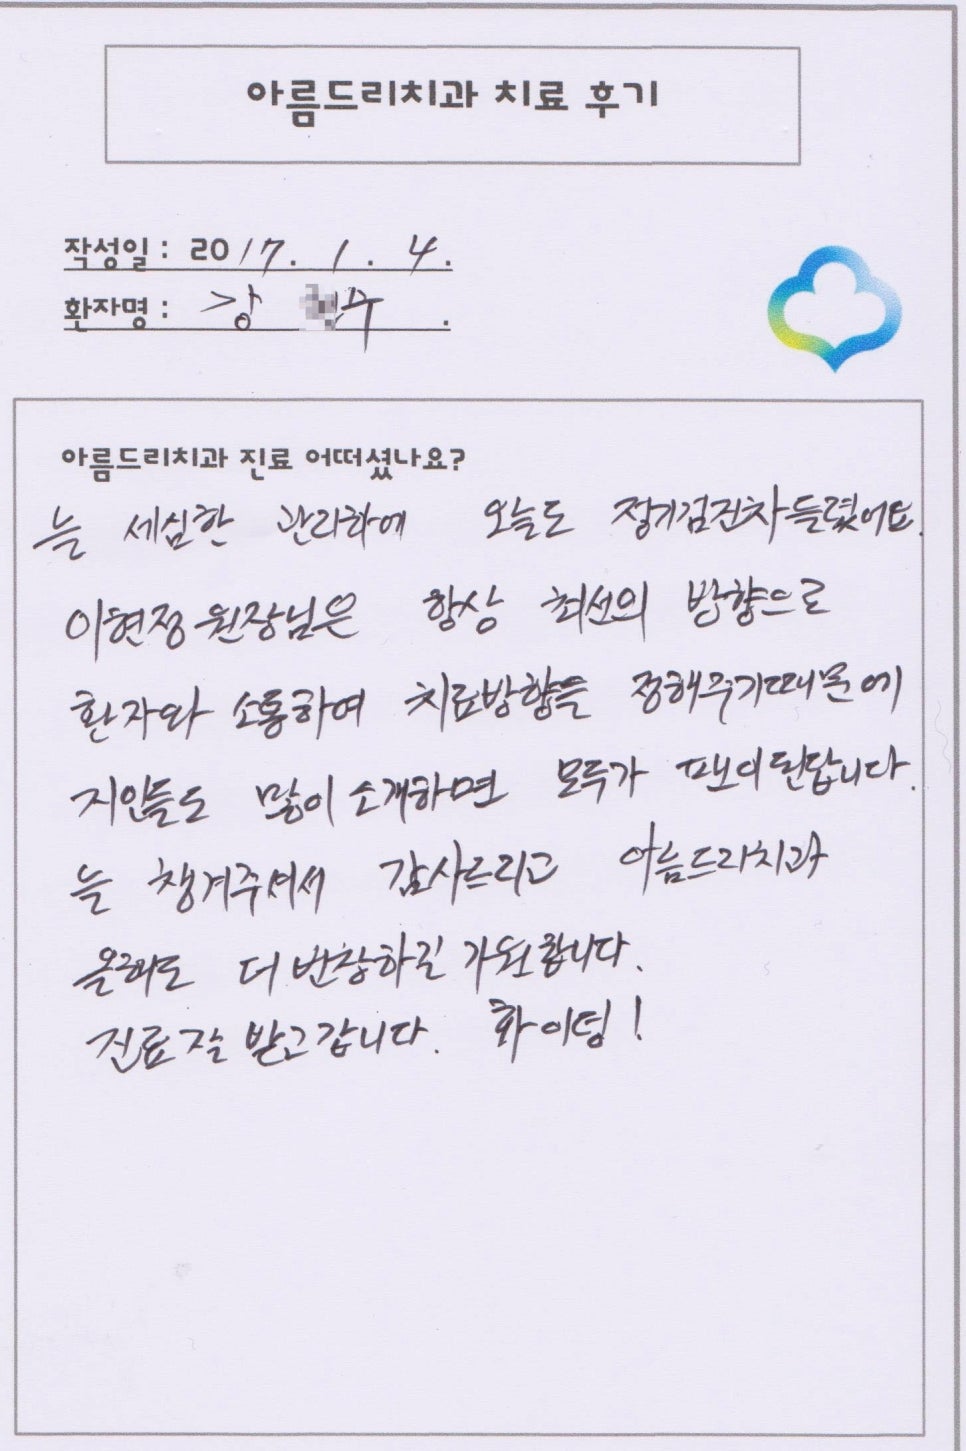 아름드리치과 치료 후기
작성일 : 2017. 1. 4.
환자명 : 강 우 .
아름드리치과 진료 어떠셨나요?
늘 세심한 관리하에 오늘도 정기검진차 들렸어요.
이현정 원장님은 항상 최선의 방향으로
환자와 소통하여 치료방향을 정해주기때문에
지인들도 많이 소개하면 모두가 팬이 된답니다.
늘 챙겨주셔서 감사드리고 아름드리치과
올해도 더 번창하길 기원합니다.
진료 잘 받고 갑니다. 화이팅!